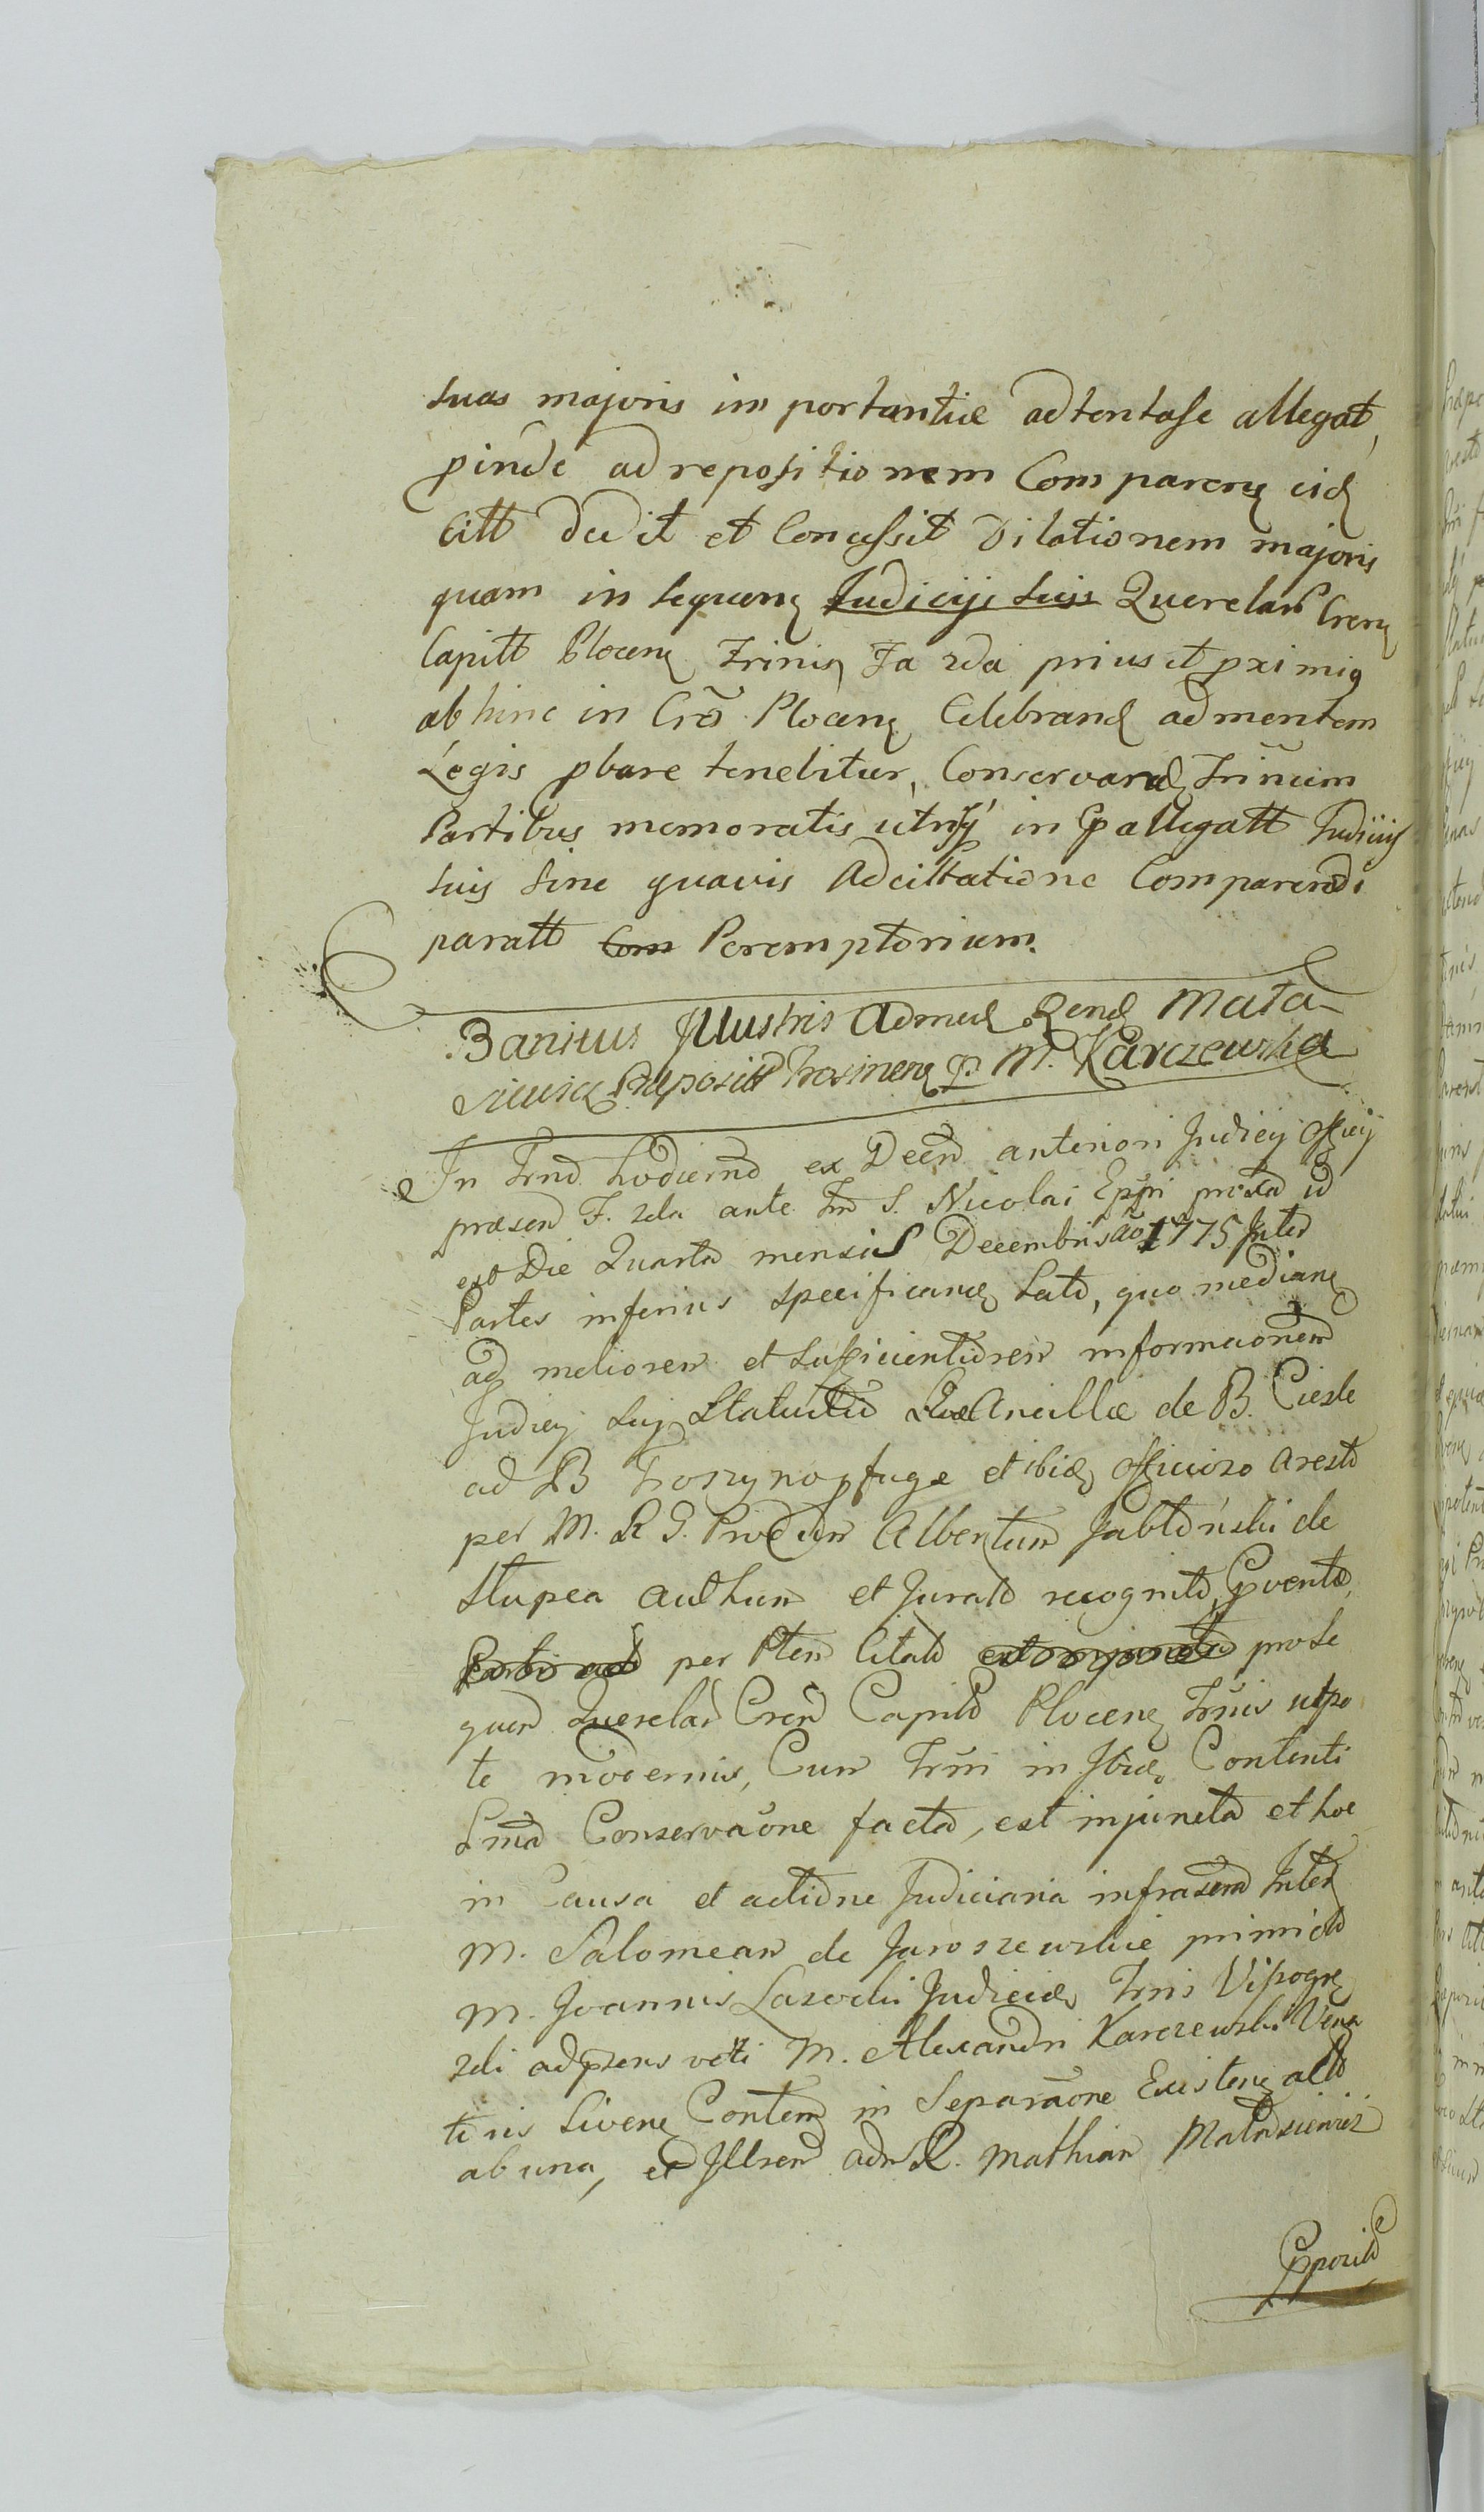 suas majoris importantiæ adtentasse allegat,
pinde ad repositionem Compareng eid
Citt dedit et Concessit Dilationem majoris
quam in sequeng Judicije suis Querelar Creng
Capitt Ploceng Trinis Fa 2da prius et pximis
ab hinc in Cro Ploceng Celebrand ad mentem
Legis pbare tenebitur, Conservand Trinum
Partibus memoratis utrisq in Ppallegatt Judiciis
suis sine quavis Adcittatione Comparendi
paratt Com Peremptorium.
Banitus Illustris Admud Rend Mata
siewicz Præposit Trosineng p. M. Karczewska
In Trno hodierno ex Decto anteriori Judicij officij
præsen F. 2da ante Fm S. Nicolai Eppi proxa id
est Die Quarta mensis Decembris ao 1775 Inter
Partes inferius specificand Lato, quo median
ad meliorem et sufficientiorem informaonem
Judicij suj Statuitio Ancillæ de B. Ciesle
ad B Troszyno pfugæ et ibid officioso aresto
per M. R G. Providum Albertum Jabłoński de
Stupca authum et Jurato recognito Pventæ,
per Pten Citato prose
quen Querelar Cren Capitlo Ploceng Trnis utpo
te modernis, Cum Trni in Ibid Contenti
Lma Conservaone facta, est injuncta et hoc
in Causa et actione Judiciaria infrascrip Inter
M. Salomean de Jaroszewskie primi
M. Joannis Lasocki Judicis Trris Vissogr
2di adprens voti M. Alexandri Karczewski Vena
toris Liveng Contem in Separaone Existeng acto
ab una, et Illrem adm R. Mathian Matasiewicz
Pposito